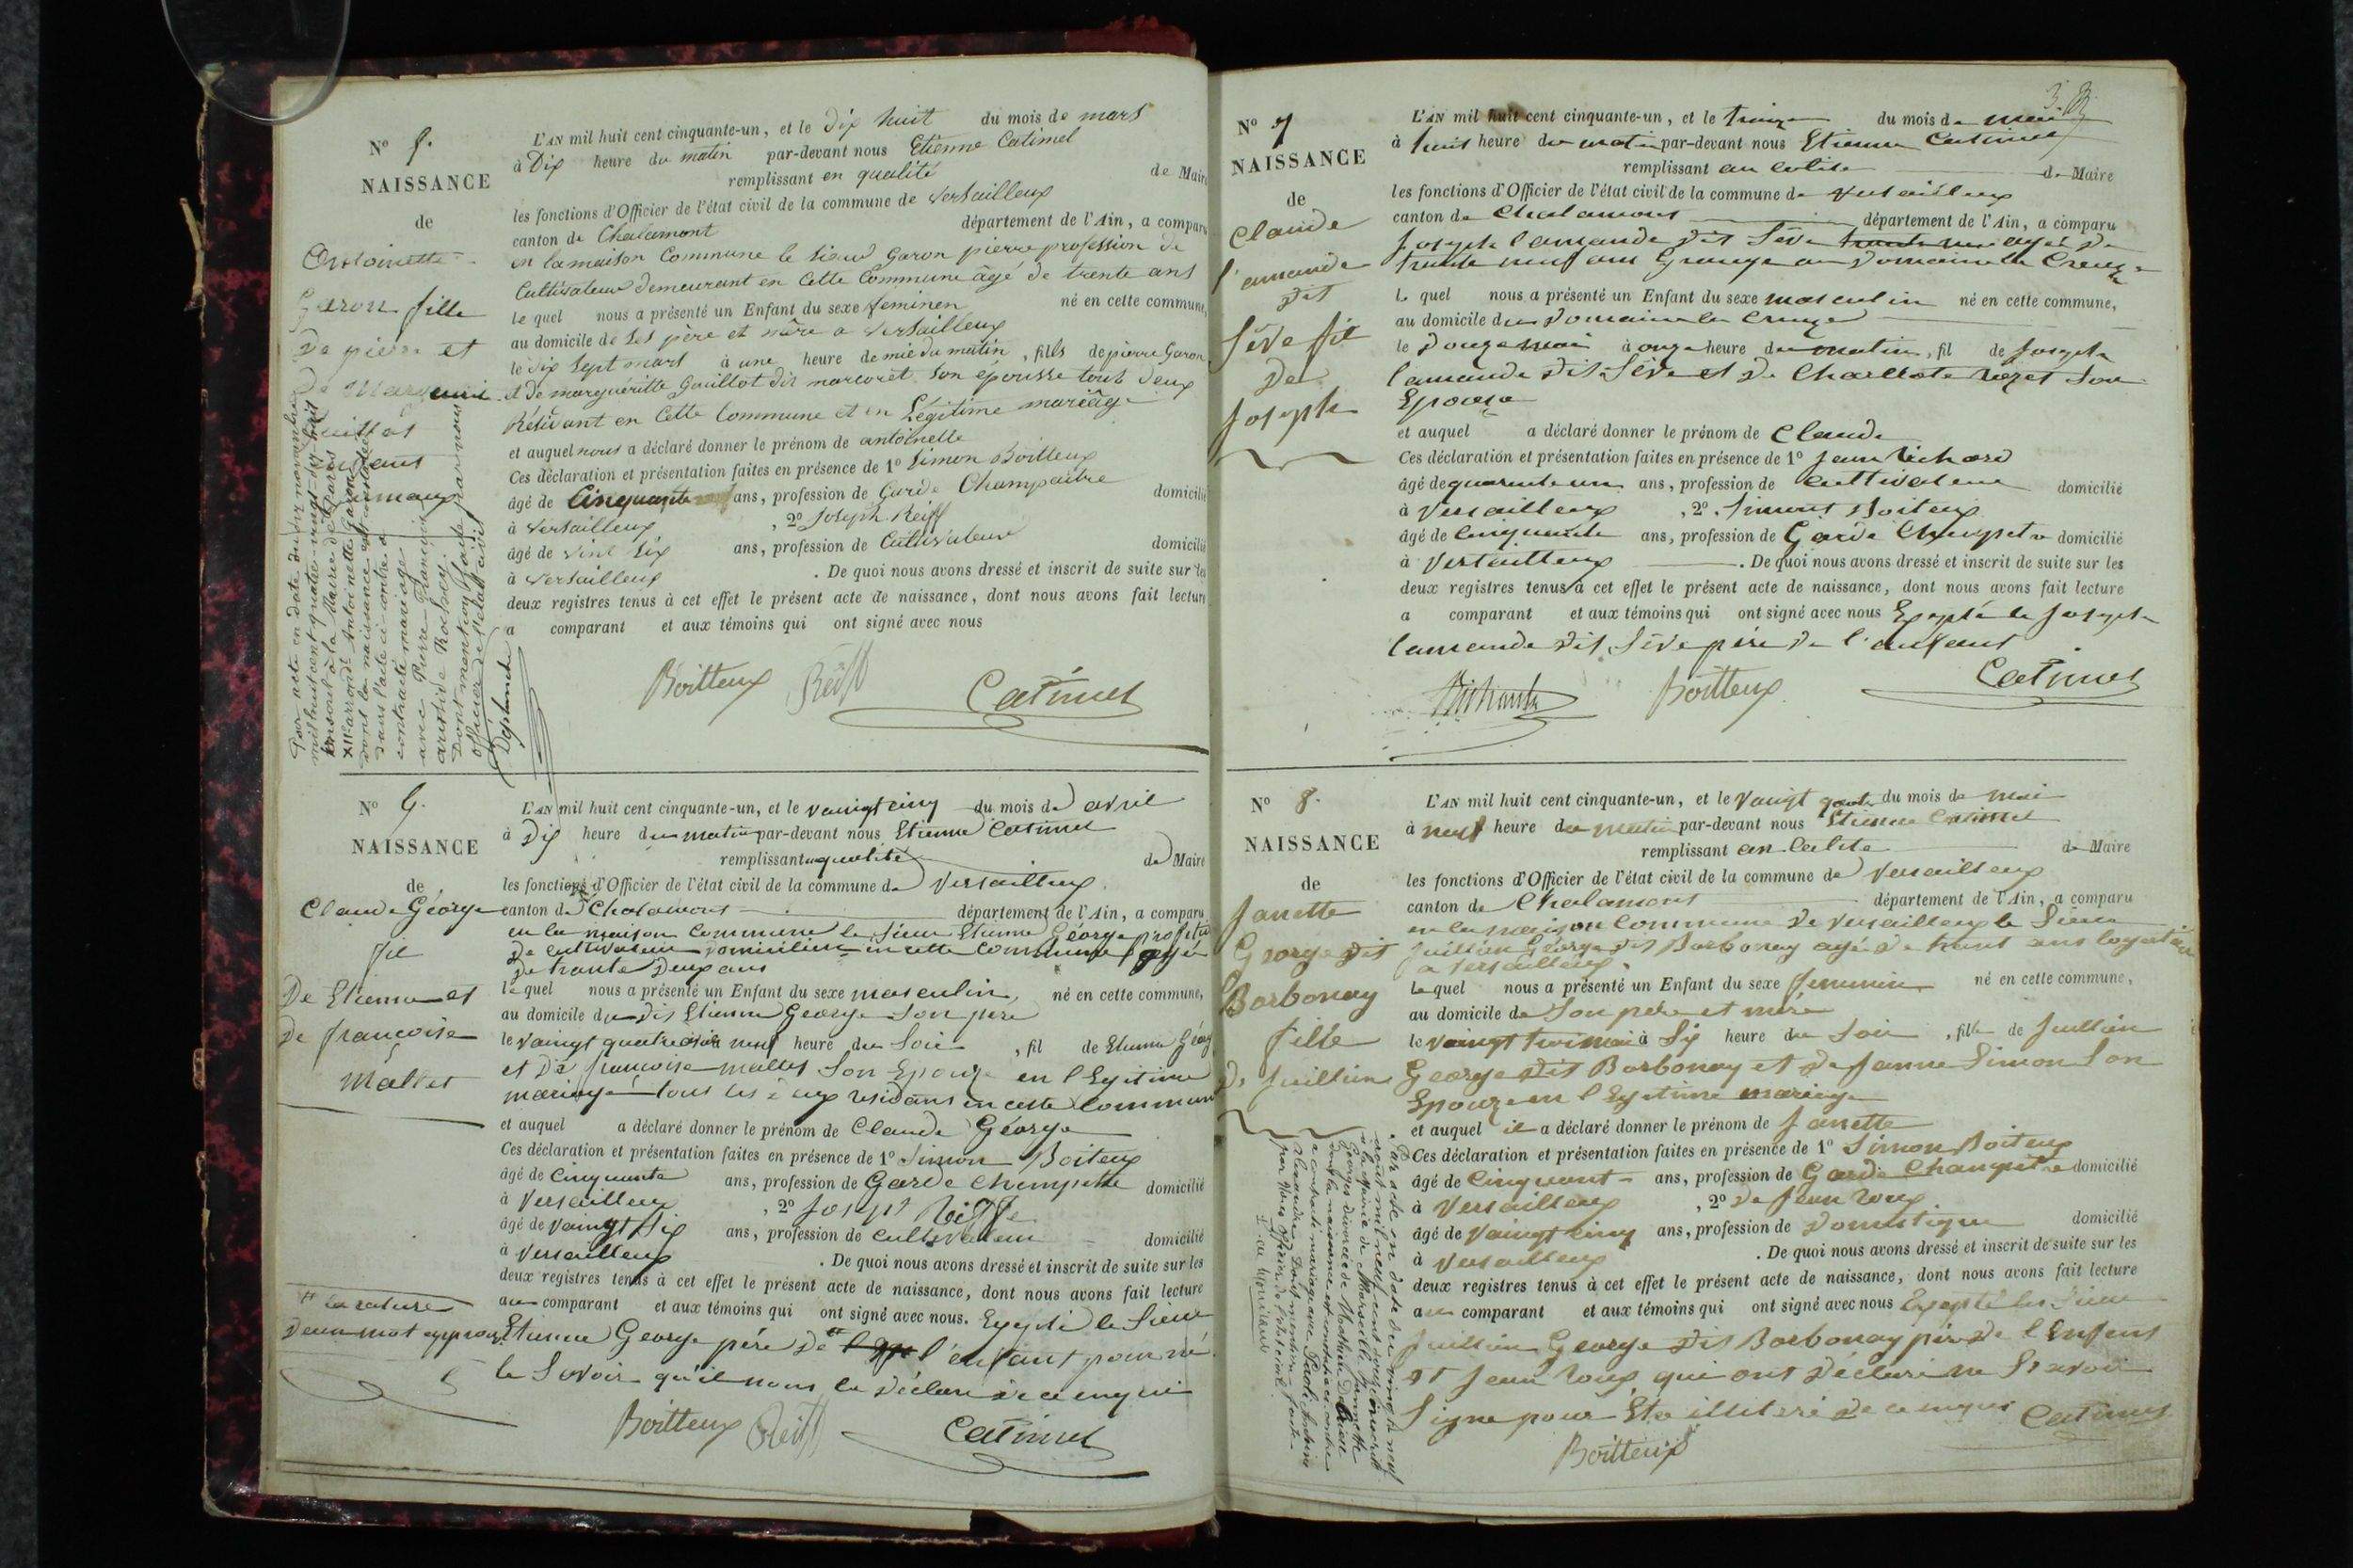 N° 5.
NAISSANCE
de
Antoinette
Garon fille
de pierre et
de Marguerite
L'AN mil huit cent cinquante-un, et le Dix huit du mois de mars
à Dix heure du matin par-devant nous Etienne Catimel
remplissant en qualité de Maire
les fonctions d'Officier de l'état civil de la commune de Versailleux
canton de Chalamont département de l'Ain, a comparu
en la maison Commune le sieur Garon pierre profession de
Cultivateur demeurant en Cette Commune âgé de trente ans
le quel nous a présenté un Enfant du sexe feminen né en cette commune,
au domicile de Ses père et mère a Versailleux
le dix Sept mars à une heure demie du matin, fills de pierre Garon
et de marguéritte Guillot dit marcoret Son epousse tout deux
Résidant en Cette Commune et en Légitime mariâge
et auquel nous a déclaré donner le prénom de antoinette
Ces déclaration et présentation faites en présence de 1° Simon Boitteux
âgé de Cinquante ans, profession de Garde Champaitre domicilié
à Versailleux, 2° Joseph Reiff
âgé de vint Six ans, profession de Cultivateur domicilié
à Versailleux . De quoi nous avons dressé et inscrit de suite sur les
deux registres tenus à cet effet le présent acte de naissance, dont nous avons fait lecture
a comparant et aux témoins qui ont signé avec nous
Boitteux Reiff Catimel
Par acte en date du dix novembre
mil huit cent quatre-vingt-dix-huit
inscrit à la Mairie de Paris
XIIe arrondt Antoinette Garon
dont la naissance est constatée
dans l'acte ci-contre a
contracté mariage
avec Pierre François
aristide Rochery.
Dont mention faite par nous
officier de l'état civil
N° 6.
NAISSANCE
de
Claude Géorge
fil
De Etienne et
de francoise
Mallet
L'AN mil huit cent cinquante-un, et le vaingt cinq du mois de avril
à Dix heure du matin par-devant nous Etienne Catimel
remplissant en qualité de Maire
les fonctions d'Officier de l'état civil de la commune de Versailleux
canton de Chalamont département de l'Ain, a comparu
en la maison Commune le Sieur Etienne Géorge profession
de cultivateur domicilier en cette Commune agé
de trante deux ans
le quel nous a présenté un Enfant du sexe masculin, né en cette commune,
au domicile du dit Etienne George Son pere
le vaingt quatre avril à neuf heure du Soir, fil de Etienne Géorge
et de françoise mallet Son Epouze en l Egitime
mariage tous les deux residans en cette Commune
et auquel a déclaré donner le prénom de Claude Géorge
Ces déclaration et présentation faites en présence de 1° Simon Boiteux
âgé de Cinquante ans, profession de Garde Champette domicilié
à Versailleux, 2° Josept Reiffe
âgé de vaingt Six ans, profession de Cultivateur domicilié
à Versailleux . De quoi nous avons dressé et inscrit de suite sur les
deux registres tenus à cet effet le présent acte de naissance, dont nous avons fait lecture
au comparant et aux témoins qui ont signé avec nous. Exepté le Sieur
Etienne George pére de l'enfant pour ne
le Savoir qu'il nous la déclaré de ce enquri
la rature
deun mot approuv
Boitteux Reiff Catimel
N° 7
NAISSANCE
de
Claude
l'amande
dit
Séve fil
De
Joseph
L'AN mil huit cent cinquante-un, et le traize du mois de mai
à huit heure du matin par-devant nous Etienne Catimel
remplissant an calite de Maire
les fonctions d'Officier de l'état civil de la commune de Versailleux
canton de Chalamont département de l'Ain, a comparu
Joseph l'amande dit Séve agé de
trante neuf ans Granger au Domaine la Creuze
Le quel nous a présenté un Enfant du sexe masculin né en cette commune,
au domicile du Domaine la Creuze
le douze mai à onze heure du matin, fil de Joseph
lamande dit Séve et de Charllote rozet Son
Epouze
et auquel a déclaré donner le prénom de Claude
Ces déclaration et présentation faites en présence de 1° Jean Richard
âgé de quarente un ans, profession de Cultivateur domicilié
à Versailleux, 2°. Simont Boiteux
âgé de Cinquante ans, profession de Garde Champetre domicilié
à Versailleux . De quoi nous avons dressé et inscrit de suite sur les
deux registres tenus à cet effet le présent acte de naissance, dont nous avons fait lecture
a comparant et aux témoins qui ont signé avec nous Exepté le Joseph
lamande dit Séve pére de l'enfant
Boitteux Catimel
N° 8.
NAISSANCE
de
Janette
George dit
Borbonay
fille
De Juillien
L'AN mil huit cent cinquante-un, et le Vaingt quatre du mois de mai
à neuf heure du matin par-devant nous Etienne Catimel
remplissant an calite de Maire
les fonctions d'Officier de l'état civil de la commune de Versailleux
canton de Chalamont département de l'Ain, a comparu
en la maison Commune de Versailleux le Sieur
Juillien George dit Borbonay agé de trant ans
a Versailleux
Le quel nous a présenté un Enfant du sexe feminin né en cette commune,
au domicile de Son pére et mére
le vaingt trois mai à Six heure du Soir, fille de Juillien
George dit Borbonay et de Janne Simon Son
Epouze en l Egitime mariage
et auquel il a déclaré donner le prénom de Janette
Ces déclaration et présentation faites en présence de 1° Simon Boiteux
âgé de Cinquant ans, profession de Garde Champetre domicilié
à Versailleux, 2° de Jean Roux
âgé de Vaingt cinq ans, profession de Domestique domicilié
à Versailleux . De quoi nous avons dressé et inscrit de suite sur les
deux registres tenus à cet effet le présent acte de naissance, dont nous avons fait lecture
au comparant et aux témoins qui ont signé avec nous Exepté les Sieur
Juillien George dit Borbonay pér de l Enfent
et Jean Roux qui ont déclaré ne Savoir
Signe pour Etre illiteré de ce enquis Catimel
Boitteux
Par acte en date du vingt neuf
août mil neuf cent douze inscrit
à la Mairie de Marseille Jeannette
Georges divorcée de
dont la naissance est constatée ci contre
a contracté mariage avec
Alexandre. Dont mention faite
par nous officier de l'état civil.